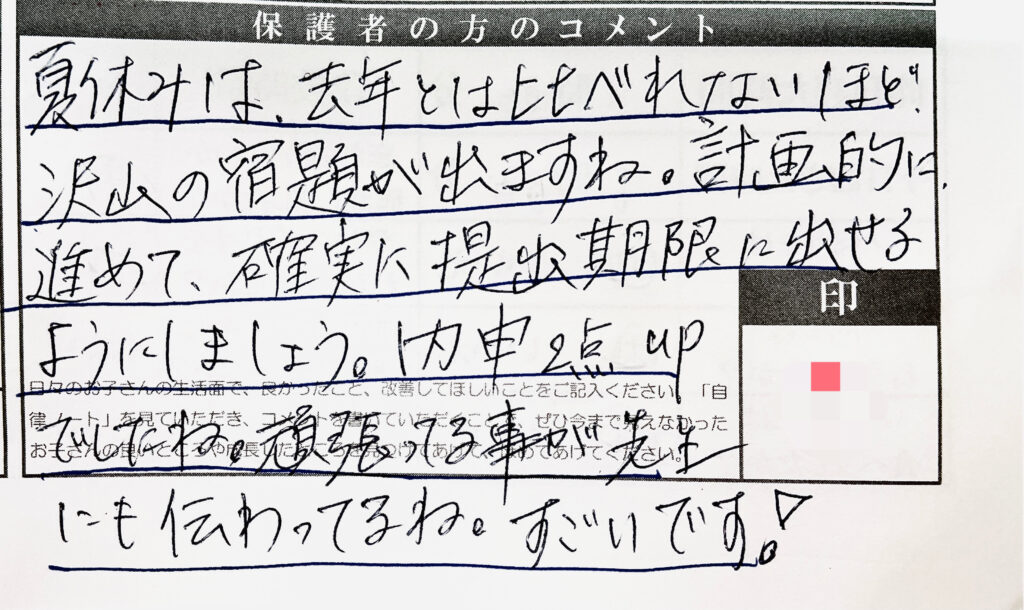 保護者の方のコメント
夏休みは、去年とは比べれないほど、
沢山の宿題が出ますね。計画的に、
進めて、確実に提出期限に出せる
印
ようにしましょう。内申2点up
日々のお子さんの生活面で、良かったこと、改善してほしいことをご記入ください。「自
律ノート」を見ていただき、コメントを書いていただくことで、ぜひ今まで見えなかった
お子さんの良いところや成長したところを見つけてあげて、ほめてあげてください。
でしたね。頑張ってる事が先生
にも伝わってるね。すごいです!